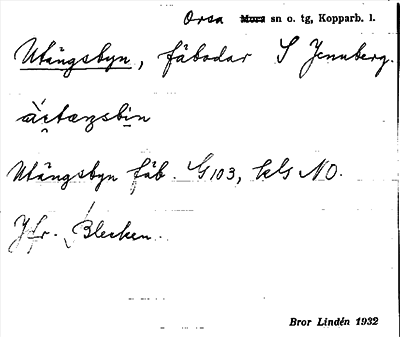 Orsa Mora sn o. tg, Kopparb. l.
Utängsbyn, fäbodar S Jennberg.
Utängsbyn fäb. G103, kls NO.
Jfr. Blecken.
Bror Lindén 1932